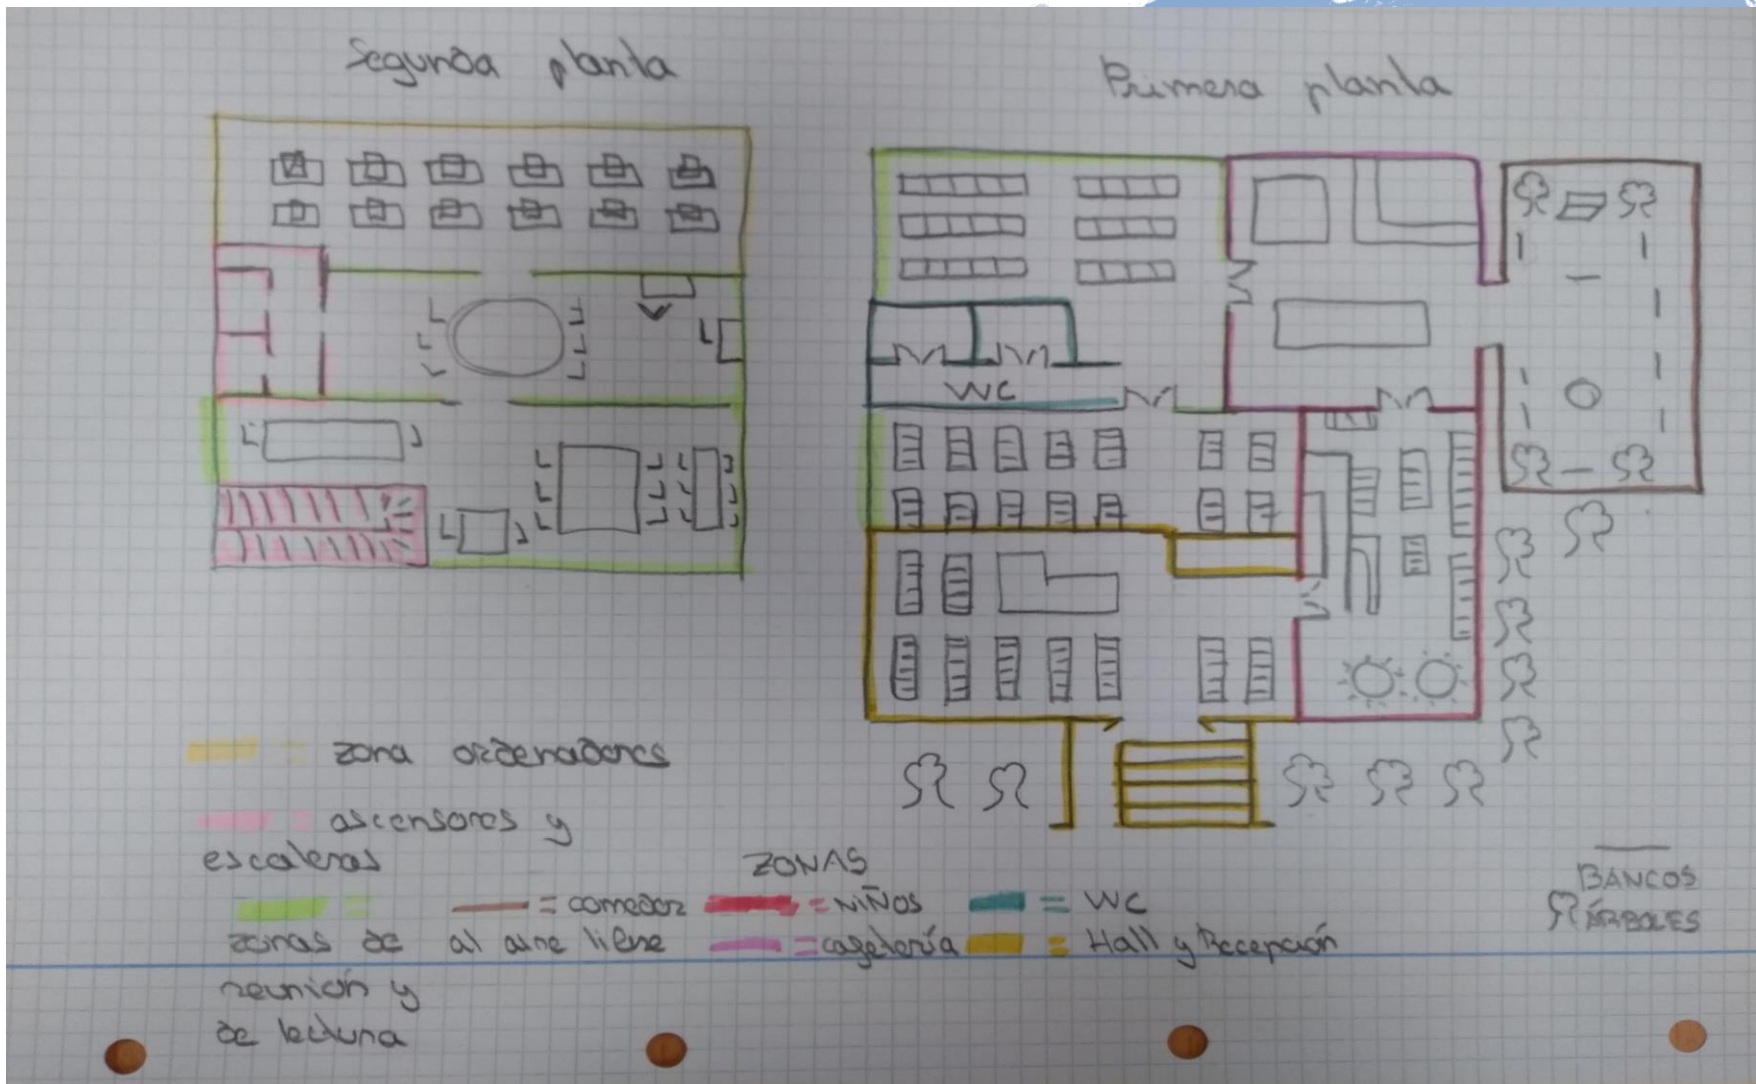 Segunda planta
Primera planta
WC
= zona ordenadores
= ascensores y
escaleras
=
zonas de
reunión y
de lectura
= comedor
al aire libre
ZONAS
= NIÑOS
= cafetería
= WC
= Hall y Recepción
BANCOS
ÁRBOLES